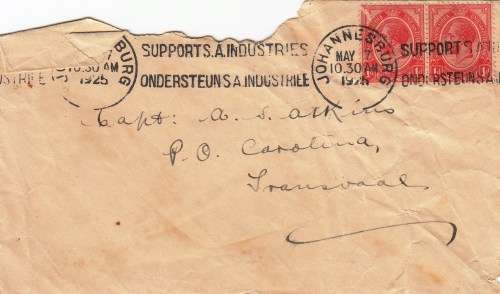 BURG
10.30 AM
1925
SUPPORT S.A. INDUSTRIES
ONDERSTEUN S.A. INDUSTRIEE
JOHANNESBURG
MAY
10.30 AM
1925
SUPPORT S.A.
ONDERSTEUN S.A. INDUSTRIEE
Capt: A. S. Atkins
P.O. Carolina,
Transvaal